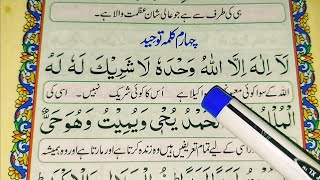 ہی کی طرف سے ہے جو عالی شان عظمت والا ہے۔
چہارم کلمہ توحید
لَاۤ اِلٰهَ اِلَّا اللّٰهُ وَحْدَهٗ لَا شَرِيْكَ لَهٗ لَهُ
اللہ کے سوا کوئی اکیلا ہے اس کا کوئی شریک نہیں۔ اسی کی
الْمُلْكُ الْحَمْدُ يُحْيٖ وَيُمِيْتُ وَهُوَ حَیٌّ
اسی کے لیے تمام تعریفیں ہیں وہ زندہ کرتا ہے اور مارتا ہے اور وہ ہمیشہ